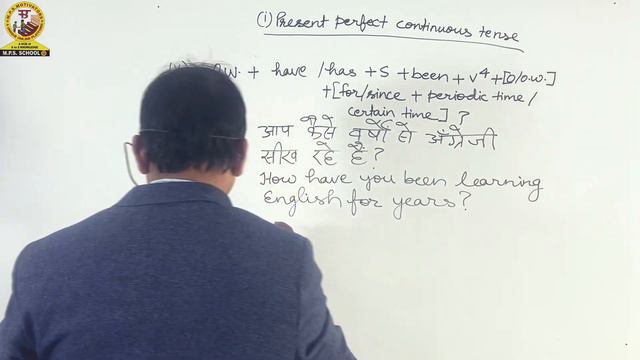 M.P.S. SCHOOL
(1) Present perfect continuous tense
+ have / has + S + been + v⁴ + [O/o.w.]
+ [for/since + periodic time /
certain time] ?
आप कैसे वर्षों से अंग्रेजी
सीख रहे हैं ?
How have you been learning
English for years?